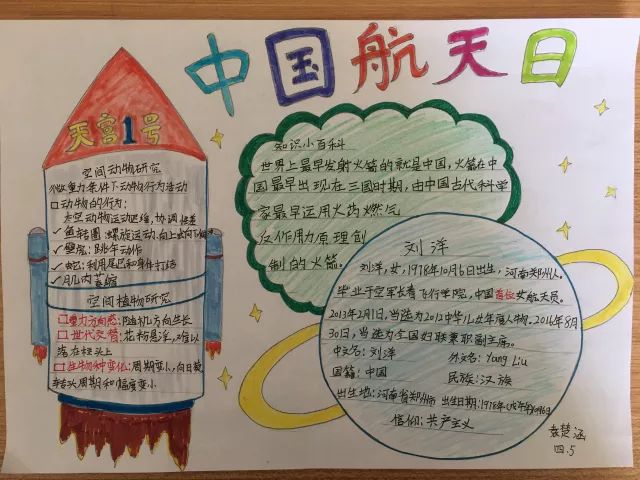 中国航天日
天宫1号
空间动物研究
微重力条件下动物行为活动
口动物的行为:
太空动物运动迟缓,协调性差
✓鱼转圈 螺旋运动,向上或向下
✓壁虎:跳年动作
✓蛇:利用尾巴和身体打结
✓肌肉萎缩
空间植物研究
口重力方向感:随机方向生长
口世代交替:花粉悬浮,难以
落在柱头上
口生物钟变化:周期变小,向日葵
转头周期和幅度变小
知识小百科
世界上最早发射火箭的就是中国,火箭在中
国最早出现在三国时期,由中国古代科学
家最早运用火药燃气
反作用力原理创
制的火箭。
刘洋
刘洋,女,1978年10月6日出生,河南郑州人。
毕业于空军长春飞行学院,中国首位女航天员。
2013年2月1日,当选为2012中华儿女年度人物。2016年8月
30日,当选为全国妇联兼职副主席。
中文名:刘洋 外文名:Yang Liu
国籍:中国 民族:汉族
出生地:河南省郑州市 出生日期:1978年(戊午年)
信仰:共产主义
袁楚涵
四.5